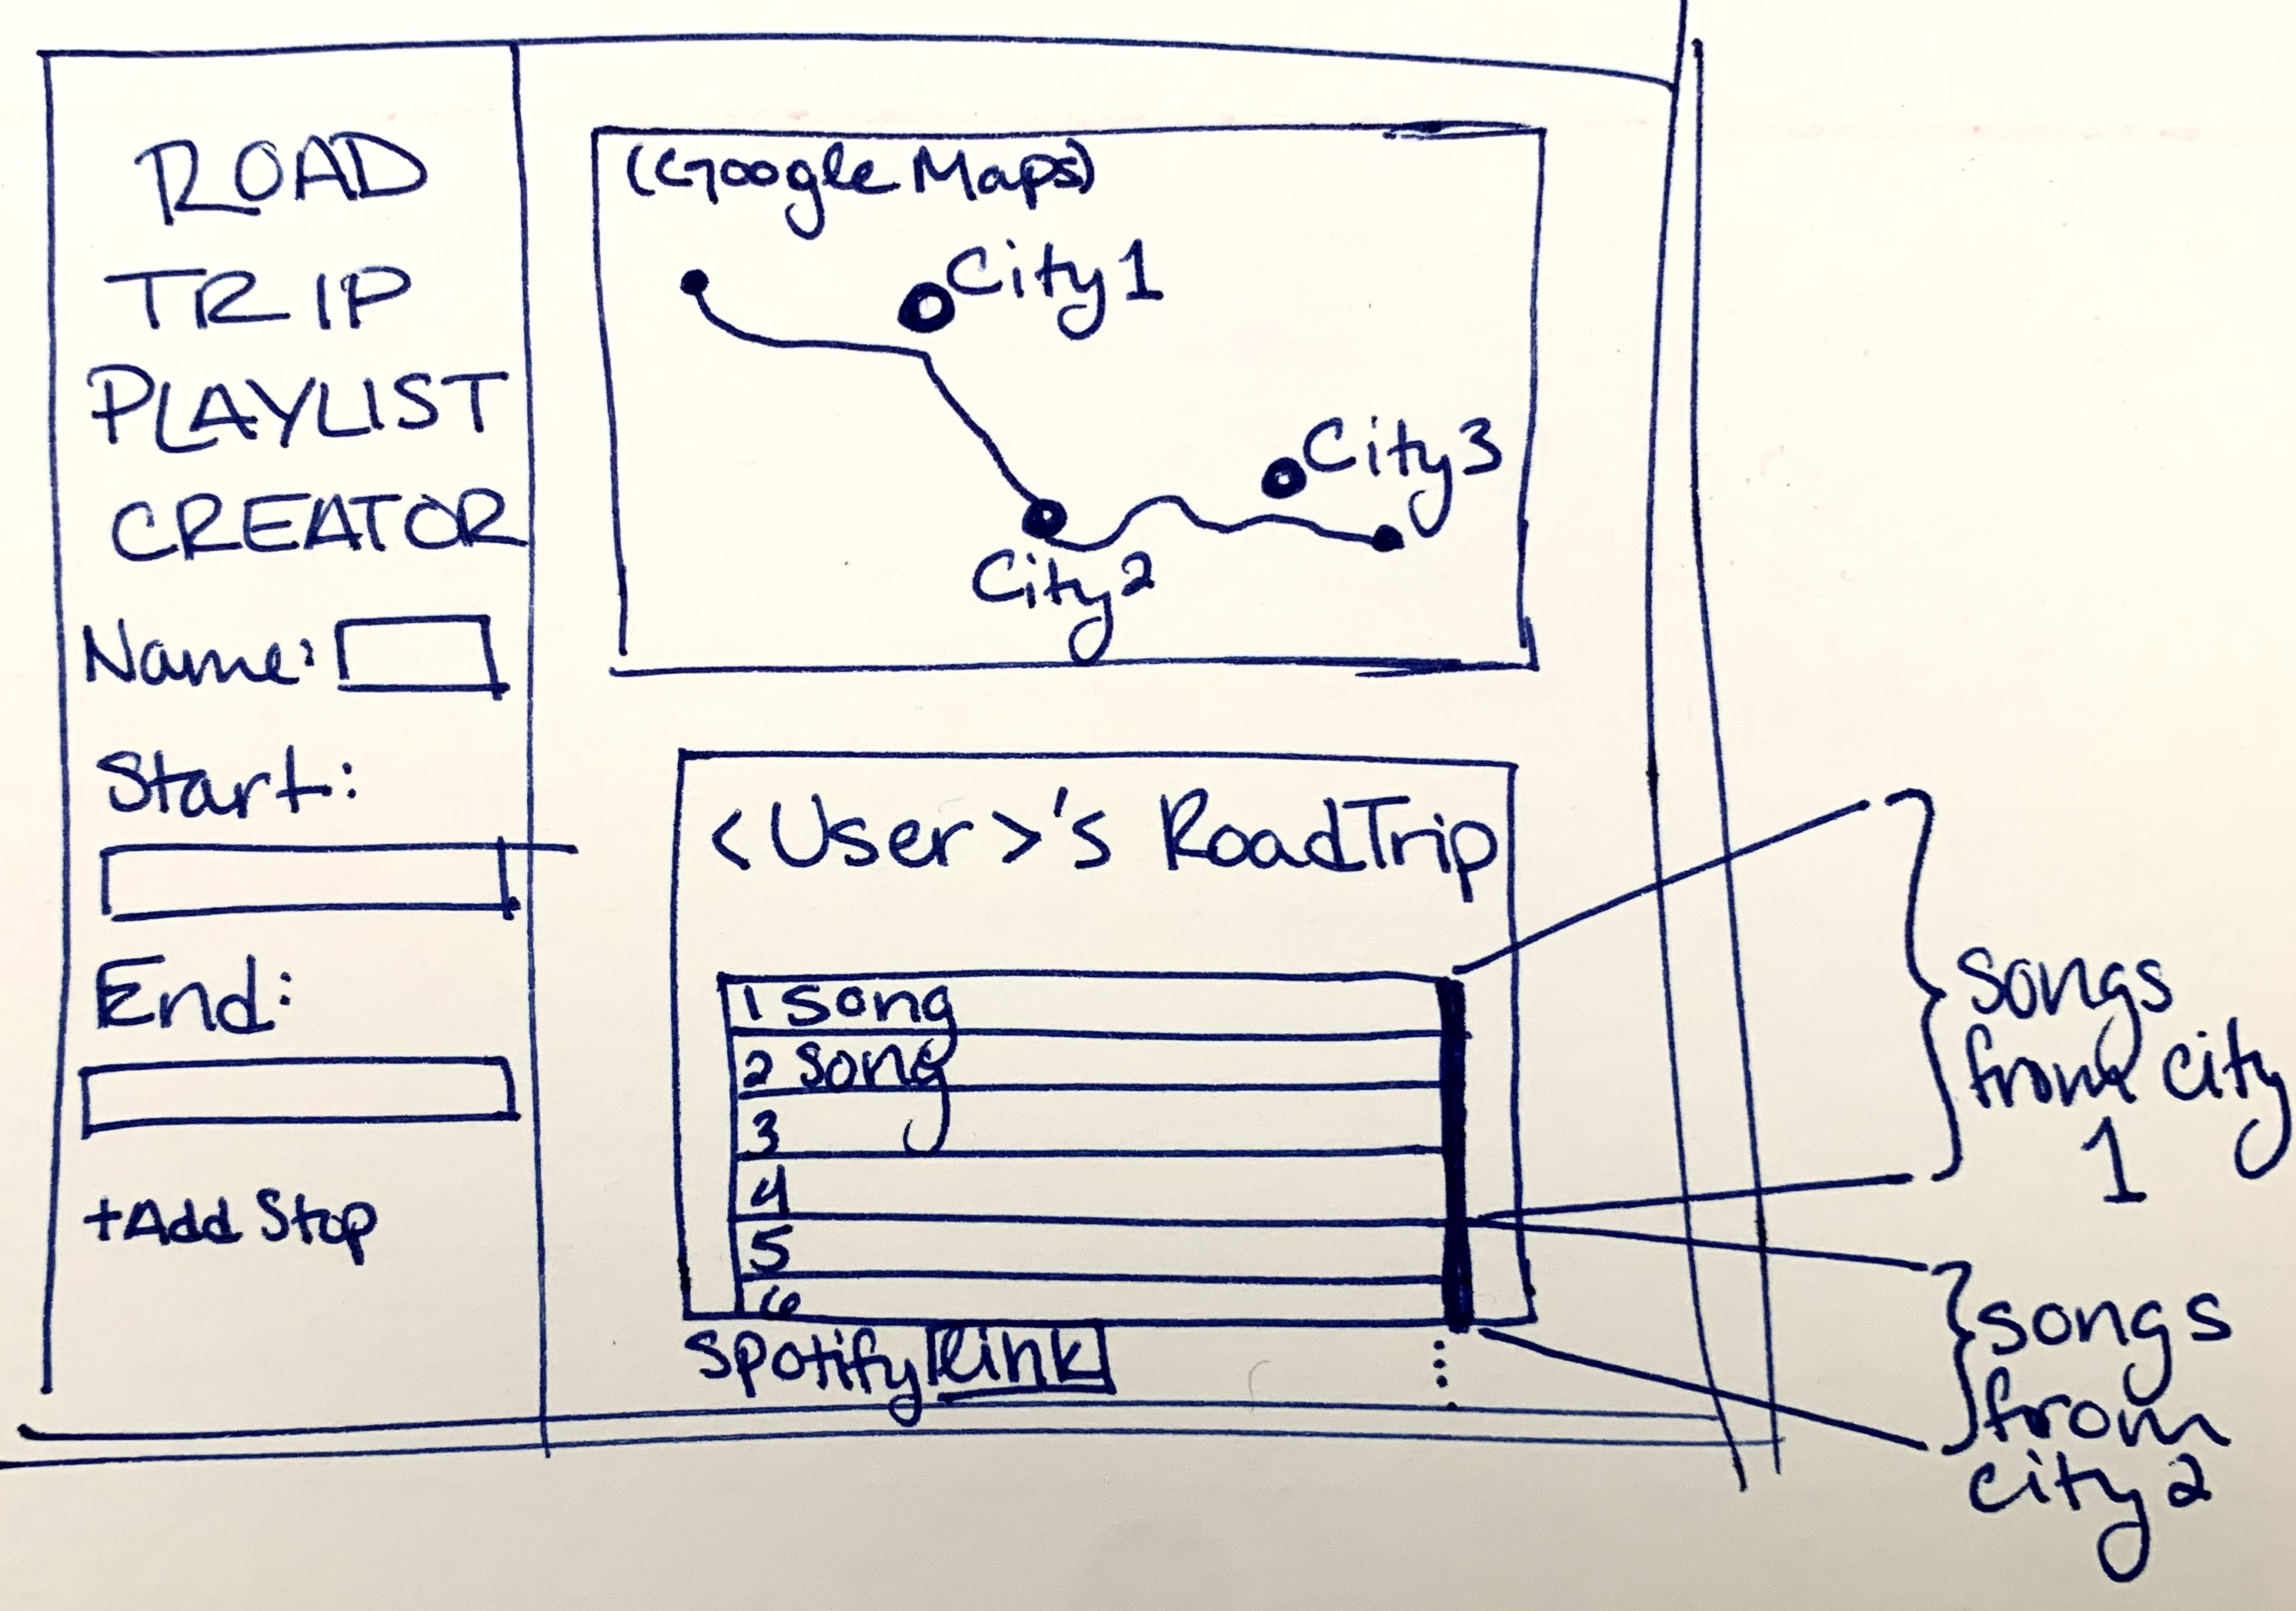 ROAD
TRIP
PLAYLIST
CREATOR
Name:
Start:
End:
+Add Stop
(Google Maps)
City 1
City 3
City 2
<User>'s RoadTrip
1 song
2 song
3
4
5
6
Spotify link
songs
from city
1
songs
from
city 2